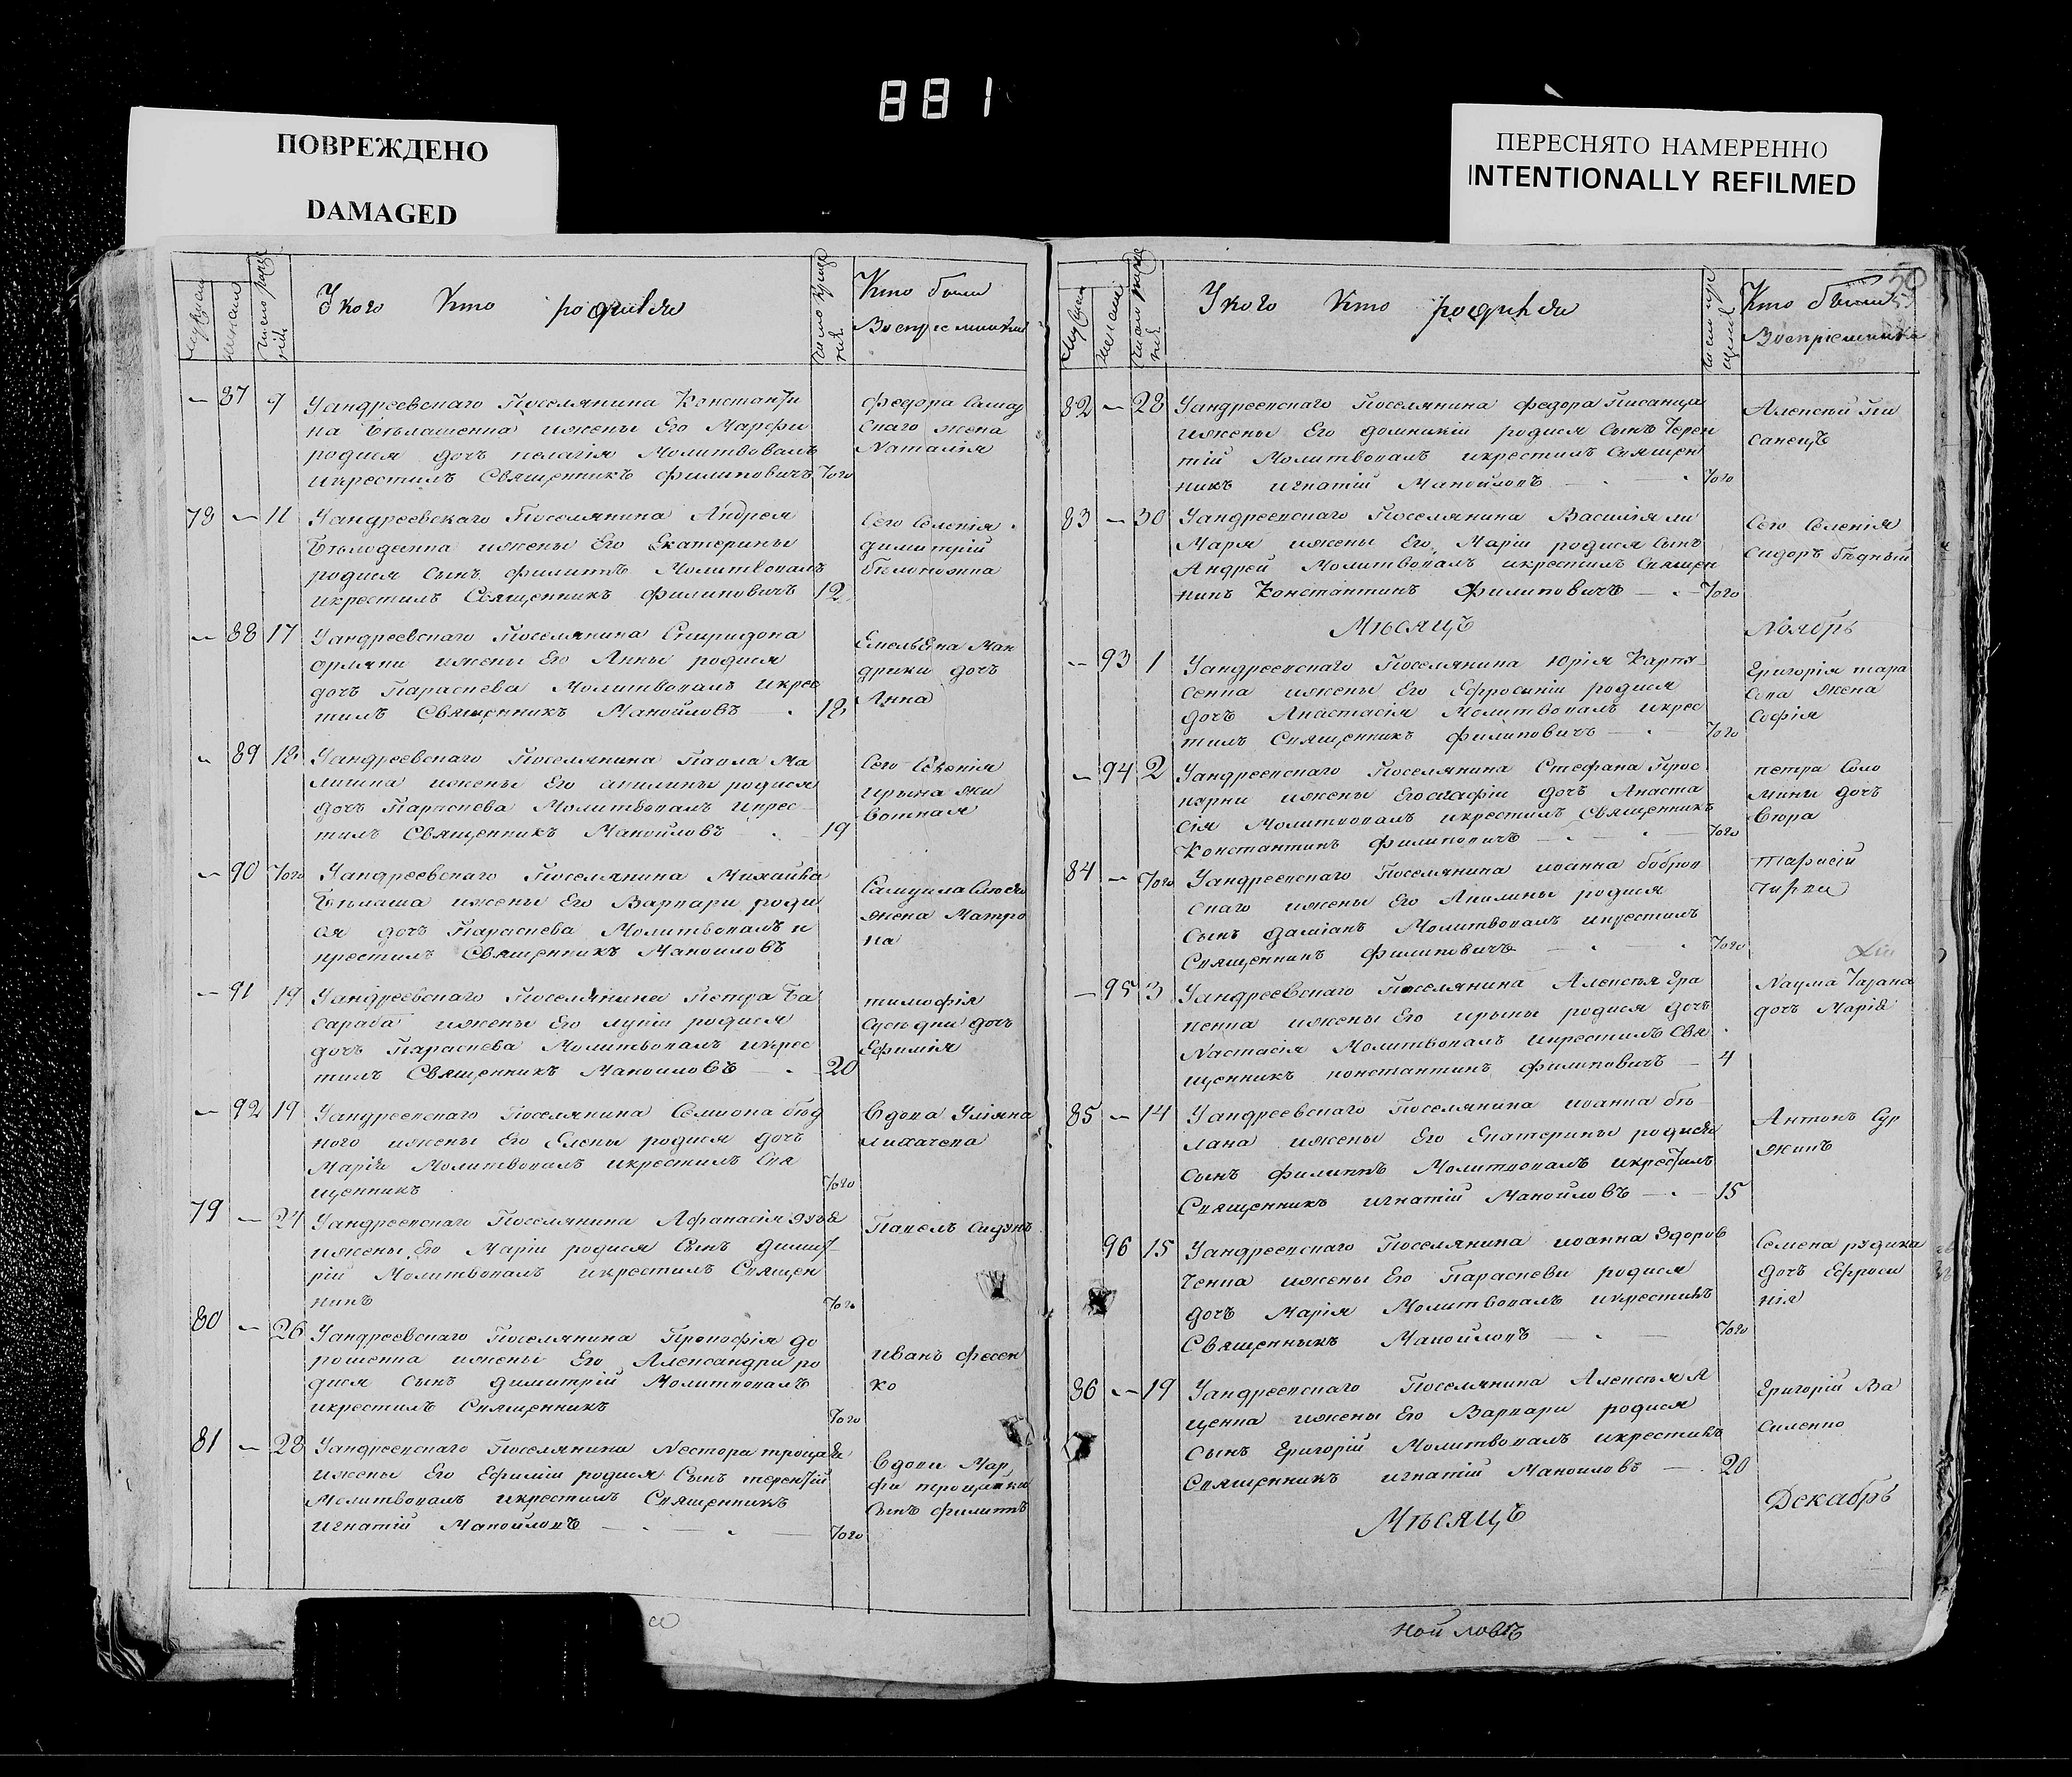 881
ПОВРЕЖДЕНО
DAMAGED
ПЕРЕСНЯТО НАМЕРЕННО
INTENTIONALLY REFILMED
Укого Кто родился
Кто были
Воспріемники
87 9 Уандреевскаго Поселянина Константи
на Бѣлашенка ижены Его Марфи
родися дочъ пелагія Молитвовалъ
икрестилъ Священникъ филиповичъ Того
федора
скаго жена
Наталія
78 — 11 Уандреевскаго Поселянина Андрея
ижены Его Екатерины
родися сынъ филиппъ Молитвовалъ
икрестилъ Священникъ филиповичъ 12
Сего Селенія
димитрій
— 88 17 Уандреевскаго Поселянина Спиридона
ижены Его Анны родися
дочъ Параскева Молитвовалъ икрес
тилъ Священникъ Манойловъ — 18
Емельяна Ман
дрики дочъ
Анна
89 18 Уандреевскаго Поселянина Павла Ма
ижены Его акилины родися
дочъ Параскева Молитвовалъ икрес
тилъ Священникъ Манойловъ — 19
Сего Селенія
ирына жи
вотная
— 90 Того Уандреевскаго Поселянина Михайла
Бѣлаша ижены Его Варвары роди
ся дочъ Параскева Молитвовалъ и
крестилъ Священникъ Манойловъ
Самуила
жена Матро
на
— 91 19 Уандреевскаго Поселянина Петра Ба
сараба ижены Его лукіи родися
дочъ Параскева Молитвовалъ икрес
тилъ Священникъ Манойловъ — 20
тимофія
дочъ
Ефимія
— 92 19 Уандреевскаго Поселянина Семиона бѣд
ного ижены Его Елены родися дочъ
Марія Молитвовалъ икрестилъ Свя
щенникъ Того
Вдова Уліяна
лихачева
79 — 24 Уандреевскаго Поселянина Афанасія
ижены Его Маріи родися Сынъ димит
рій Молитвовалъ икрестилъ Священ
никъ Того
Павелъ
80 — 26 Уандреевскаго Поселянина Прокофія до
рошенка ижены Его Александри ро
дися сынъ димитрій Молитвовалъ
икрестилъ Священникъ Того
иванъ фесен
ко
81 — 28 Уандреевскаго Поселянина Нестора
ижены Его Ефиміи родися Сынъ терентій
Молитвовалъ икрестилъ Священникъ
игнатій Манойловъ — Того
Вдови Мар
фи
Сынъ филиппъ
50
Укого Кто родился
Кто были
Воспріемники
82 — 28 Уандреевскаго Поселянина федора Писанца
ижены Его домникіи родися Сынъ Терен
тій Молитвовалъ икрестилъ Священ
никъ игнатій Манойловъ — Того
Алексѣй Пи
санецъ
83 — 30 Уандреевскаго Поселянина Василія ли
Маря ижены Его Маріи родися Сынъ
Андрей Молитвовалъ икрестилъ Священ
никъ Константинъ Филиповичъ — Того
Сего Селенія
сидоръ бѣдный
Мѣсяцъ
Ноябрь
— 93 1 Уандреевскаго Поселянина юрія Карпя
сенка ижены Его Ефросиніи родися
дочъ Анастасія Молитвовалъ икрес
тилъ Священникъ филиповичъ — Того
Григорія тара
сова жена
Софія
— 94 2 Уандреевскаго Поселянина Стефана Прос
курни ижены дочъ Анаста
сія Молитвовалъ икрестилъ Священникъ
Константинъ филиповичъ — Того
петра Соло
мины дочъ
84 — Того Уандреевскаго Поселянина иоанна бобров
скаго ижены Его Акилины родися
Сынъ даміанъ Молитвовалъ икрестилъ
Священникъ филиповичъ — Того
тарасій
— 95 3 Уандреевскаго Поселянина Алексѣя
ненка ижены Его ирыны родися дочъ
Настасія Молитвовалъ икрестилъ Свя
щенникъ константинъ филиповичъ — 4
Наума Тарана
дочъ Марія
85 — 14 Уандреевскаго Поселянина иоанна бѣ
лана ижены Его Екатерины родися
Сынъ филиппъ Молитвовалъ икрестилъ
Священникъ игнатій Манойловъ — 15
Антонъ Сур
жикъ
96 15 Уандреевскаго Поселянина иоанна Здоров
ченка ижены Его Параскеви родися
дочъ Марія Молитвовалъ икрестилъ
Священникъ Манойловъ — Того
Семена рудика
дочъ Ефроси
нія
86 — 19 Уандреевскаго Поселянина Алексѣя Я
ценка ижены Его Варвари родися
Сынъ Григорій Молитвовалъ икрестилъ
Священникъ игнатій Манойловъ — 20
Григорій Ва
силенко
Мѣсяцъ
Декабрь
нойловъ